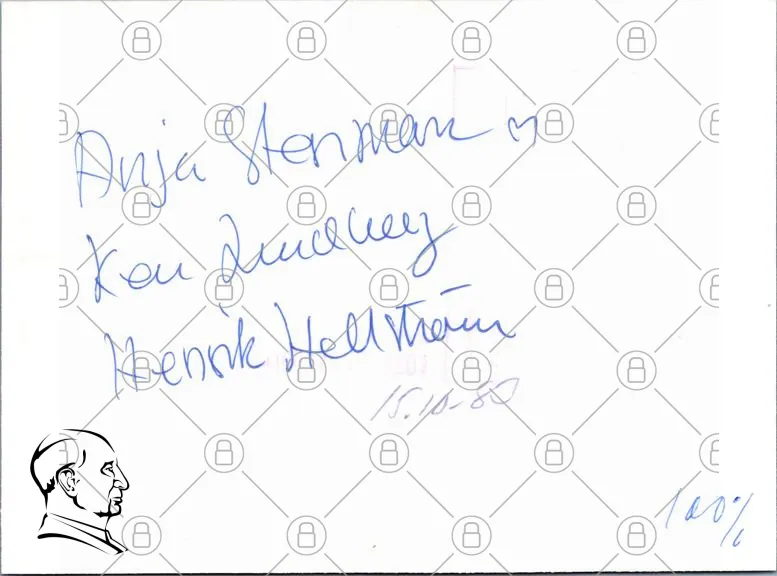 Anja Stenman
Ken Lindberg
Henrik Hellström
15.10-80
100%